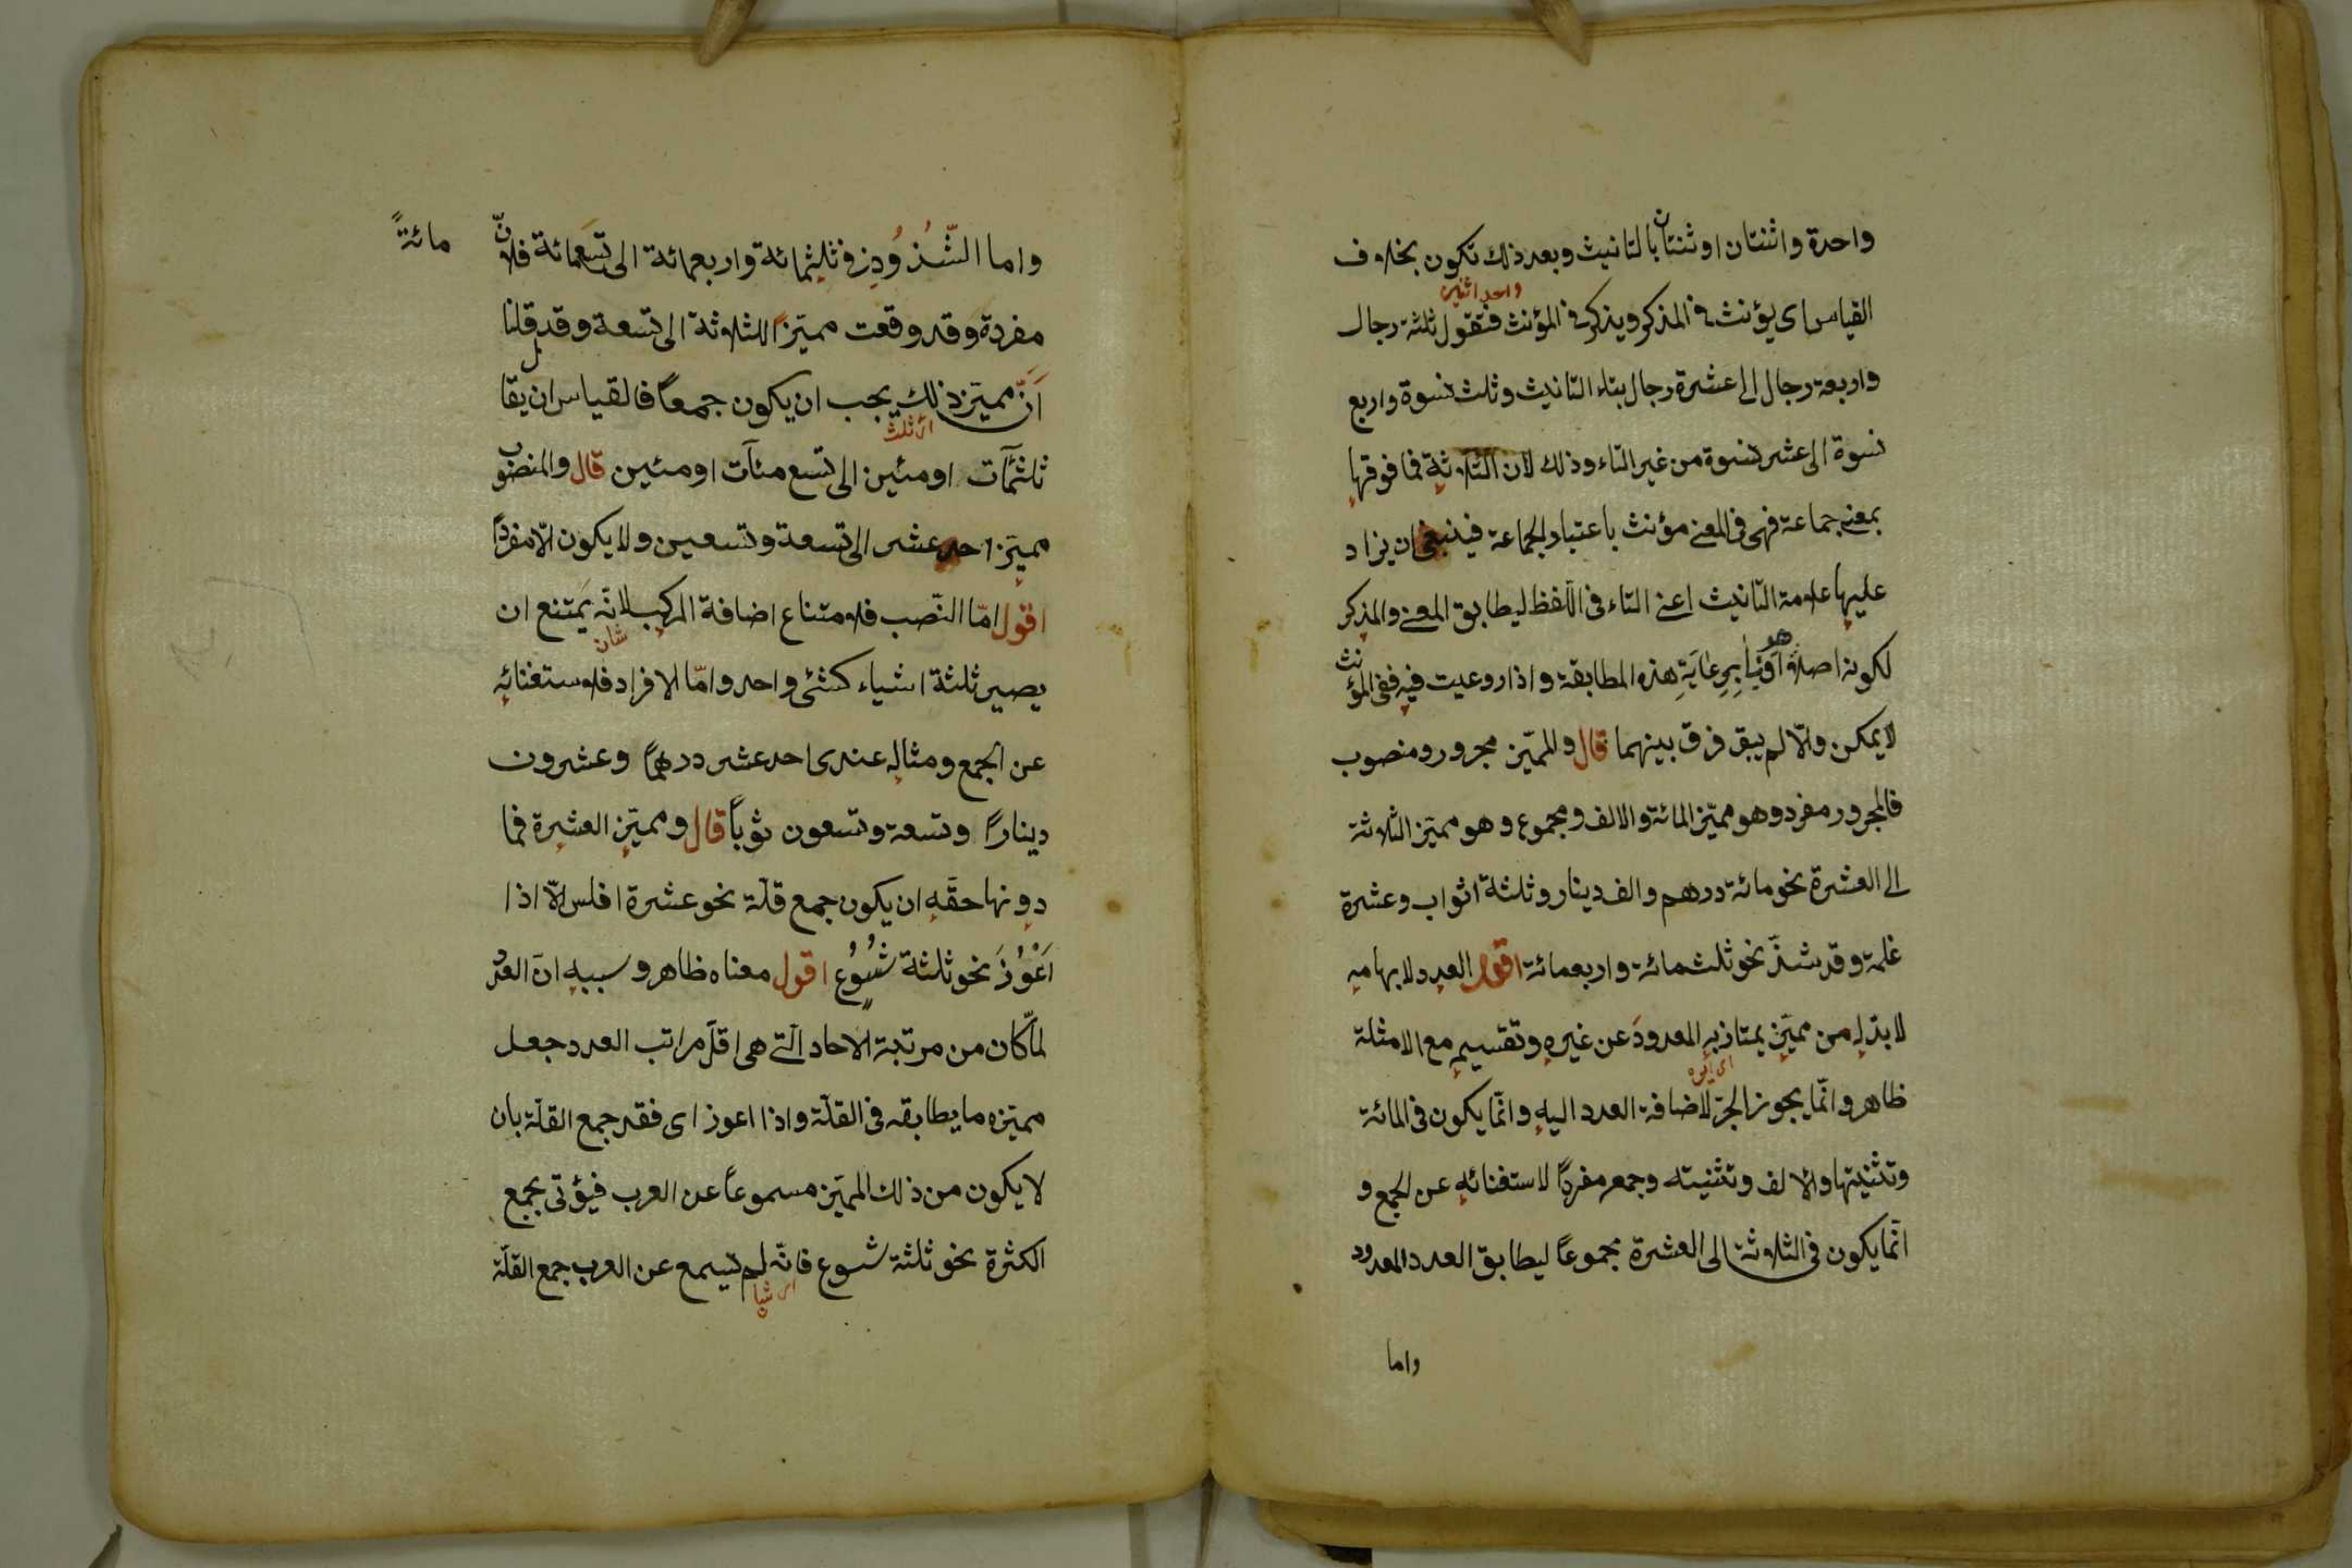 واحدة واثنتان او ثنتان بالتانيث وبعد ذلك تكون بخلاف
واحد اثنين
القياس اى يؤنث فى المذكر ويذكر فى المؤنث فتقول ثلثة رجال
واربعة رجال الى عشرة رجال بتاء التانيث وثلث نسوة واربع
نسوة الى عشر نسوة من غير التاء وذلك لان الثلاثة فما فوقها
بمعنى جماعة فهى فى المعنى مؤنث باعتبار الجماعة فينبغى ان يزاد
عليها علامة التانيث اعنى التاء فى اللفظ ليطابق المعنى والمذكر
لكونه اصلا هو اولى برعَايَةِ هذه المطابقة واذا روعيت فيه ففى المؤنث
لايمكن والّا لم يبق فرق بينهما قال والمميّز مجرور ومنصوب
فالمجرور مفرد وهو مميّز المائة والالف ومجموع وهو مميّز الثلاثة
الى العشرة نحو مائة درهم والف دينار وثلثة اثواب وعشرة
غلمة وقد شذّ نحو ثلث مائة واربعمائة اقول العدد لابهامه
لابدّ له من مميّز يمتاز به المعدودَ عن غيره وتقسيمه مع الامثلة
ظاهر وانّما يجوز الجرّ لاضافة العدد اليه وانّما يكون فى المائة
وتثنيتها والالف وتثنيته وجمعه مفردًا لاستغنائه عن الجمع و
انّما يكون فى الثلاثة الى العشرة مجموعًا ليطابق العدد المعدود
واما
واما الشّذُوُذِ فى ثلثمائة واربعمائة الى تسعمائة فلانّ مائةً
مفردة وقد وقعت مميّزًا للثلاثة الى تسعة وقد قلنا
اَنّ مميّز ذلك يجب ان يكون جمعًا فالقياس ان يقال
اى ثلث
ثلثمآت او مئين الى تسع مئآت او مئين قال والمنصوب
مميّز احد عشر الى تسعة وتسعين ولا يكون الّا مفردًا
اقول امّا النّصب فلامتناع اضافة المركب لانّه يَمتنع ان
شان
يصير ثلثة اشياء كشئ واحد وامّا الافراد فلاستغنائه
عن الجمع ومثاله عندى احد عشر درهمًا وعشرون
دينارًا وتسعة وتسعون ثوبًا قال ومميّز العشرة فما
دونها حقّه ان يكون جمع قلّة نحو عشرة افلس الّا اذا
اَعْوُزَ نحو ثلثة شُسُوُعٍ اقول معناه ظاهر وسببه انّ العدد
لمّا كان من مرتبة الاحاد الّتى هى اقلّ مراتب العدد جعل
مميّزه ما يطابقه فى القلّة واذا اعوز اى فقد جمع القلّة بان
لا يكون من ذلك المميّز مسموعًا عن العرب فيؤتى بجمع
الكثرة نحو ثلثة شسوع فانّه لم يسمع عن العرب جمع القلّة